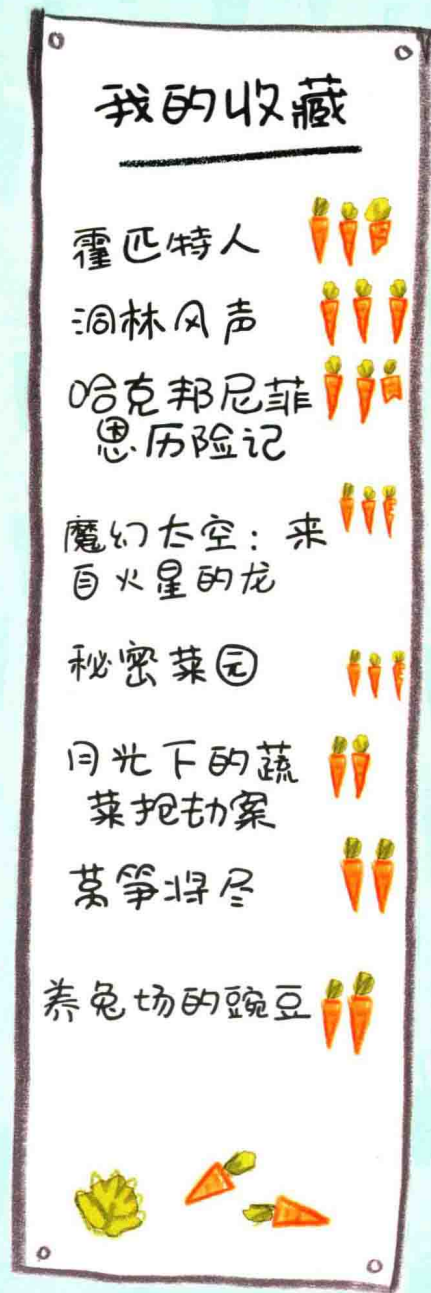 我的收藏
霍匹特人
洞林风声
哈克邦尼菲
恩历险记
魔幻太空：来
自火星的龙
秘密菜园
月光下的蔬
菜抢劫案
莴笋将尽
养兔场的豌豆